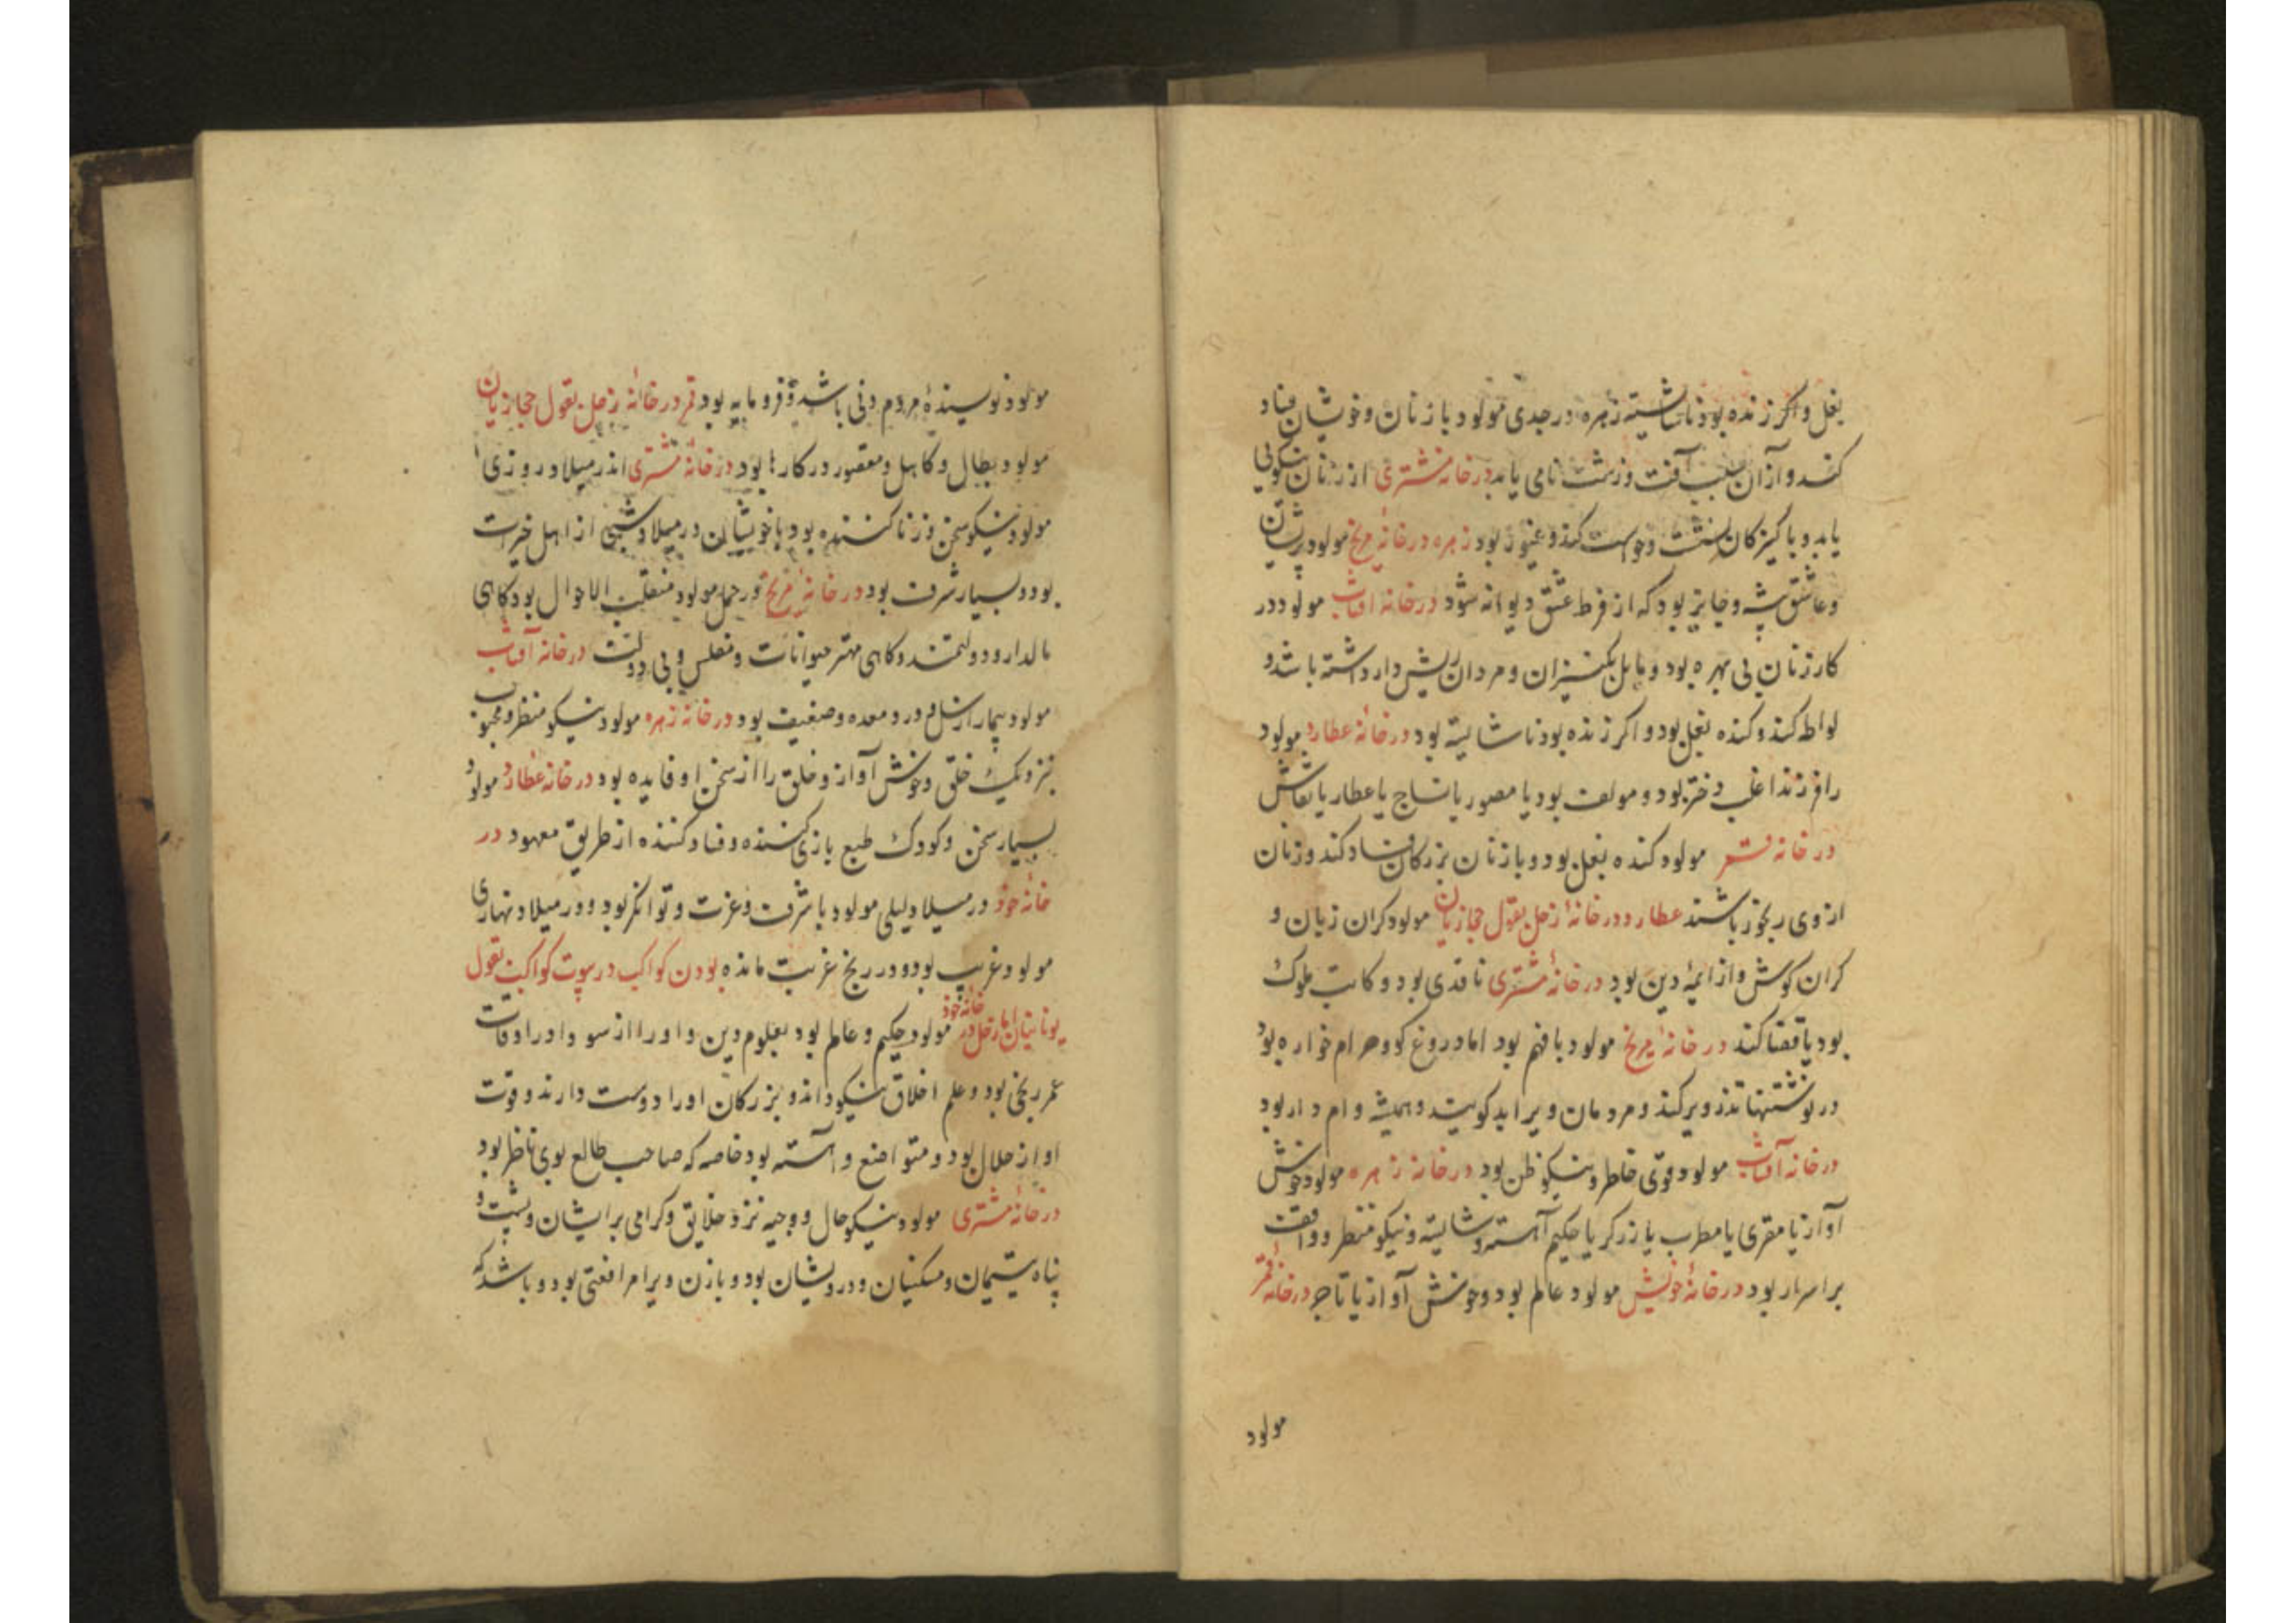 بغل واکر زنده بود ناشایسته زهره در جدی مولود با زنان و خویشان فساد
کند و از آن سبب آفت و زشت نامی یابد در خانه مشتری از زنان نیکویی
یابد و با کنیزکان نشست و خواست کند و غیور بود زهره در خانهٔ مریخ مولود پریشان
و عاشق پیشه و جایز بود که از فرط عشق دیوانه شود در خانه آفتاب مولود در
کار زنان بی بهره بود و مایل بکنیزان و مردان ریش دار داشته باشد و
لواطه کند و کنده بغل بود و اکر زنده بود ناشایسته بود در خانهٔ عطارد مولود
را فرزند اغلب دختر بود و مولف بود یا مصور یا نساج یا عطار یا نقاش
در خانه قمر مولود کنده بغل بود و با زنان بزرکان فساد کند و زنان
از وی رنجور باشند عطارد در خانهٔ زحل بقول حجازیان مولود کران زبان و
کران کوش و از ایمهٔ دین بود در خانهٔ مشتری ناقدی بود و کاتب ملوک
بود یا قضا کند در خانهٔ مریخ مولود با فهم بود اما دروغ کو و حرام خواره بود
در نوشتنها تذویر کند و مردمان ویرا بد کویند و همیشه وام دار بود
در خانه آفتاب مولود قوی خاطر و نیکو ظن بود در خانه زهره مولود خوش
آواز یا مقری یا مطرب یا زرکر یا حکیم آهسته و شایسته و نیکو منظر و واقف
بر اسرار بود در خانهٔ خویش مولود عالم بود و خوش آواز یا تاجر در خانهٔ قمر
مولود
مولود نویسندهٔ مردم دنی باشد و فرومایه بود قمر در خانهٔ زحل بقول حجازیان
مولود بطال و کاهل و مقصور در کارها بود در خانهٔ مشتری اندر میلاد روزی
مولود نیکو سخن و زنا کننده بود با خویشان در میلاد شبی از اهل خیرات
بود و بسیار شرف بود در خانهٔ مریخ و در حمل مولود منقلب الاحوال بود کاهی
مالدار و دولتمند و کاهی مهتر حیوانات و مفلس و بی دولت در خانه آفتاب
مولود بیمار از سل و درد معده و ضعیف بود در خانه زهره مولود نیکو منظر و محبوب
نزدیک خلق و خوش آواز و خلق را از سخن او فایده بود در خانه عطارد مولود
بسیار سخن و کودک طبع بازی کننده و فساد کننده از طریق معهود در
خانهٔ خود در میلاد لیلی مولود با شرف و عزت و توانکر بود و در میلاد نهاری
مولود غریب بود و در رنج غربت مانده بودن کواکب در بیوت کواکب بقول
یونانیان اما زحل در خانهٔ خود مولود حکیم و عالم بود بعلوم دین و او را از سو واد را اوقات
عمر رنجی بود و علم اخلاق نیکو داند و بزرکان او را دوست دارند و قوت
او از حلال بود و متواضع و آهسته بود خاصه که صاحب طالع بوی ناظر بود
در خانهٔ مشتری مولود نیکو حال و وجیه نزد خلایق و کرامی بر ایشان و پشت و
پناه یتیمان و مسکینان و درویشان بود و با زن ویرا مرافعتی بود و باشد که